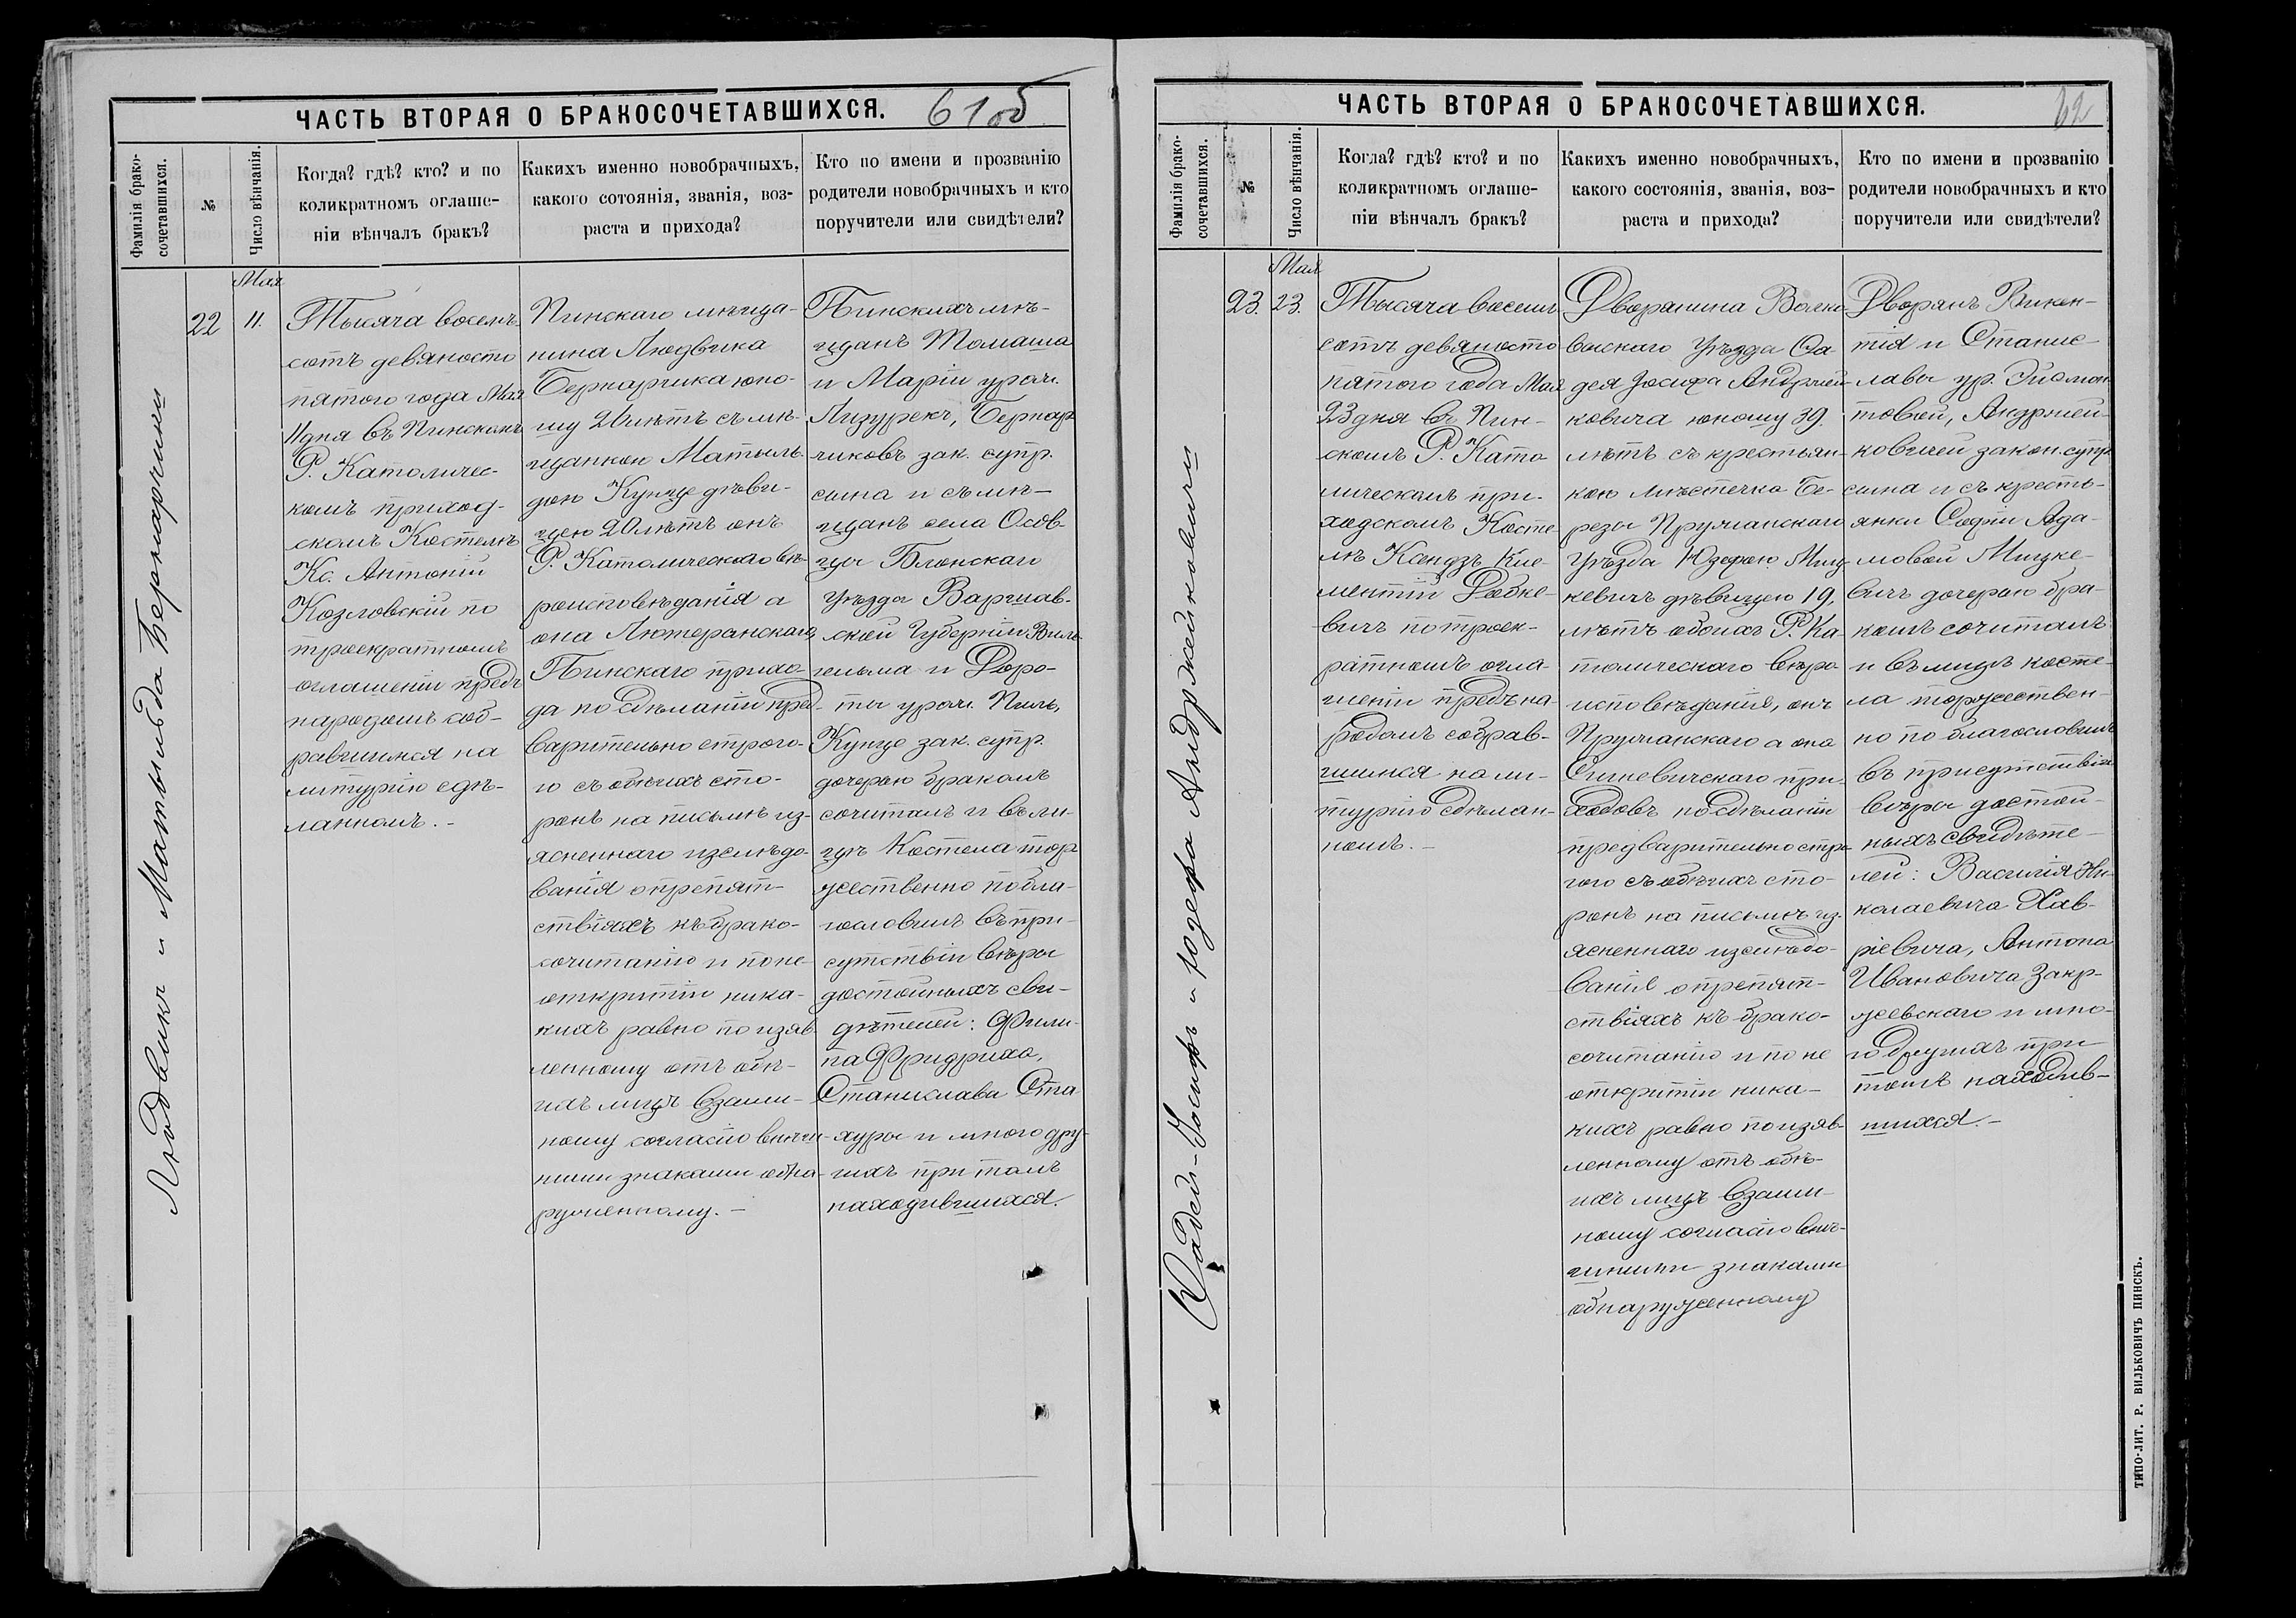 ЧАСТЬ ВТОРАЯ О БРАКОСОЧЕТАВШИХСЯ.
61об
Фамилія брако-
сочетавшихся.
№
Число вѣнчанія.
Когда? гдѣ? кто? и по
коликратномъ оглаше-
ніи вѣнчалъ бракъ?
Какихъ именно новобрачныхъ,
какого сотоянія, званія, воз-
раста и прихода?
Кто по имени и прозванію
родители новобрачныхъ и кто
поручители или свидѣтели?
Людвикъ и Матыльда Бернарчики
22
Мая
11.
Тысяча восемь
сотъ девяносто
пятого года Мая
11 дня въ Пинскомъ
Р. Католичес-
комъ приход-
скомъ Костелѣ
Кс. Антоній
Козловскій по
троекратномъ
оглашеніи предъ
народомъ соб-
равшимся на
литургію сдѣ-
ланномъ.-
Пинскаго мѣща-
нина Людвика
Бернарчика юно-
шу 20 лѣтъ съ мѣ-
щанкою Матыль-
дою Кунце дѣви-
цею 20 лѣтъ онъ
Р. Католическаго вѣ-
роисповѣданія а
она Лютеранскаго
Пинскаго прихо-
да по сдѣланіи пред-
варительно строго-
го съ обѣихъ сто-
ронъ на письмѣ из-
ясненнаго изслѣдо-
ванія о препят-
ствіяхъ къ брако-
сочитанію и по не-
открытіи ника-
кихъ равно по изяв-
ленному отъ обѣ-
ихъ лицъ взаим-
ному согласію внѣш-
ними знаками обна-
руженному.-
Пинскихъ мѣ-
щанъ Томаша
и Маріи урож.
Лизурекъ, Бернар-
чиковъ зак. супр.
сына и съ мѣ-
щанъ села Осов-
цы Блонскаго
Уѣзда Варшав-
ской Губерніи Виль-
гельма и Доро-
ты урож. Пиль,
Кунце зак. супр.
дочерью бракомъ
сочиталъ и въ ли-
цѣ Костела тор-
жественно побла-
гословилъ въ при-
сутствіи вѣры
достойныхъ сви-
дѣтелей: Фили-
па Фридриха,
Станислава Ста-
хуры и много дру-
гихъ при томъ
находившихся.
ЧАСТЬ ВТОРАЯ О БРАКОСОЧЕТАВШИХСЯ.
62
Фамилія брако-
сочетавшихся.
№
Число вѣнчанія.
Когла? гдѣ? кто? и по
коликратномъ оглаше-
ніи вѣнчалъ бракъ?
Какихъ именно новобрачныхъ,
какого состоянія, званія, воз-
раста и прихода?
Кто по имени и прозванію
родители новобрачныхъ и кто
поручители или свидѣтели?
Фадей-Іосифъ и Юзефа Андржейковичи
23.
Мая
23.
Тысяча восемь
сотъ девяносто
пятого года Мая
23 дня въ Пин-
скомъ Р. Като-
лическомъ при-
ходскомъ Косте-
лѣ Ксендзъ Кле-
ментій Робке-
вичъ по троек-
ратномъ огла-
шеніи предъ на-
родомъ собрав-
шимся на ли-
тургію сдѣлан-
номъ.-
Дворянина Волко-
выскаго Уѣзда Фа-
дея Іосифа Андржей-
ковича юношу 39.
лѣтъ съ крестьян-
кою мѣстечка Бе-
резы Пружанскаго
Уѣзда Юзефою Миц-
кевичъ дѣвицею 19.
лѣтъ обоихъ Р. Ка-
толическаго вѣро-
исповѣданія, онъ
Пружанскаго а она
Сигневичскаго при-
ходовъ по сдѣланіи
предварительно стро-
гого съ обѣихъ сто-
ронъ на письмѣ из-
ясненнаго изслѣдо-
ванія о препят-
ствіяхъ къ брако-
сочитанію и по не
открытіи ника-
кихъ равно по изяв-
ленному отъ обѣ-
ихъ лицъ взаим-
ному согласію внѣ-
шними знаками
обнаруженному
Дворянъ Викен-
тія и Станис-
лавы ур. Эйсмон-
товой, Андржей-
ковичей закон. супр.
сына и съ кресть-
янки Софіи Ада-
мовой Мицке-
вичъ дочерью бра-
комъ сочиталъ
и въ лицѣ косте-
ла торжествен-
но поблагословилъ
въ присутствіи
вѣры достой-
ныхъ свидѣте-
лей: Василія Ни-
колаевича Хав-
ріевича, Антона
Ивановича Закр-
жевскаго и мно-
го другихъ при
томъ находив-
шихся.-
ТИПО-ЛИТ. Р. ВИЛЬКОВИЧЪ ПИНСКЪ.